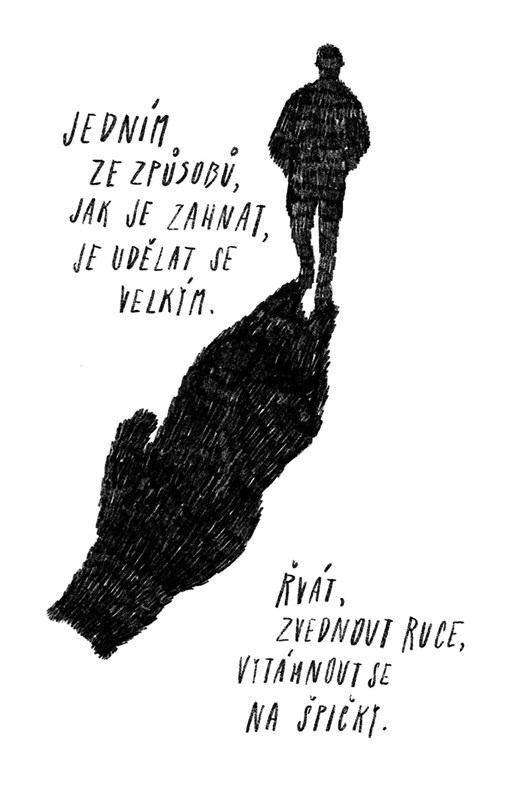 JEDNÍM
ZE ZPŮSOBŮ,
JAK JE ZAHNAT,
JE UDĚLAT SE
VELKÝM.
ŘVÁT,
ZVEDNOUT RUCE,
VYTÁHNOUT SE
NA ŠPIČKY.